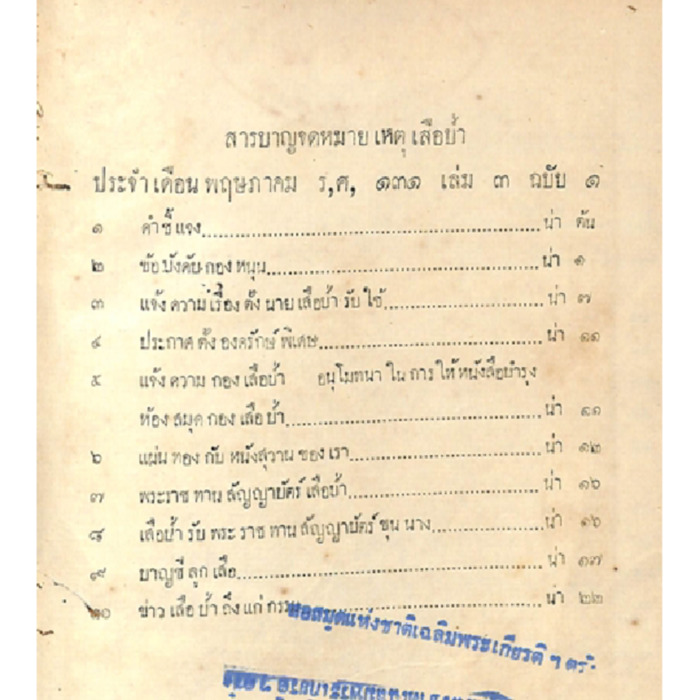 สารบาญจดหมาย เหตุ เสือป่า
ประจำ เดือน พฤษภาคม ร,ศ, ๑๓๑ เล่ม ๓ ฉบับ ๑
๑ คำ ชี้ แจง น่า ต้น
๒ ข้อ บังคับ กอง หนุน น่า ๑
๓ แจ้ง ความ เรื่อง ตั้ง นาย เสือป่า รับ ใช้ น่า ๗
๔ ประกาศ ตั้ง องครักษ์ พิเศษ น่า ๑๑
๕ แจ้ง ความ กอง เสือป่า อนุโมทนา ใน การ ให้ หนังสือบำรุง
ห้อง สมุด กอง เสือ ป่า น่า ๑๑
๖ แผ่น ทอง กับ หนังสุวาน ของ เรา น่า ๑๒
๗ พระราช ทาน สัญญาบัตร์ เสือป่า น่า ๑๖
๘ เสือป่า รับ พระ ราช ทาน สัญญาบัตร์ ขุน นาง น่า ๑๖
๙ บาญชี ลูก เสือ น่า ๑๗
๑๐ ข่าว เสือ ป่า ถึง แก่ กรรม น่า ๒๒
หอสมุดแห่งชาติเฉลิมพระเกียรติ ฯ ตรัง